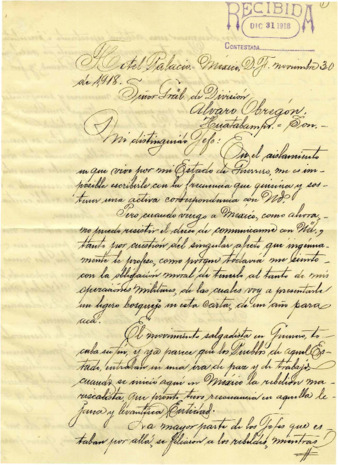 RECIBIDA
DIC 31 1918
CONTESTADA
Hotel Palacio. Mexico, D.F. noviembre 30
de 1918.
Señor Gral. de Division
Alvaro Obregón.
Huatabampo.- Son.
Mi distinguido Jefe:
En el aislamiento
en que vivo por mi Estado de Guerrero, me es im-
posible escribirle con la frecuencia que quisiera y sos-
tener una activa correspondencia con Ud.
Pero cuando vengo a Mexico, como ahora,
no puedo resistir el deseo de comunicarme con Ud.,
tanto por cuestión del singular afecto que ingenua-
mente le profeso, como porque todavia me siento
con la obligación moral de tenerlo al tanto de mis
operaciones militares, de las cuales voy a presentarle
un ligero bosquejo en esta carta, de un año para
acá.
El movimiento salgadista en Guerrero, to-
caba su fin, y ya parecia que los Pueblos de aquel Es-
tado, entraban en una era de paz y de trabajo,
cuando se inició aquí en Mexico la rebelión ma-
riscalista, que pronto tuvo resonancia en aquella le-
jana y levantisca Entidad.
La mayor parte de los Jefes que es-
taban por allá, se filiaron a los rebeldes, mientras